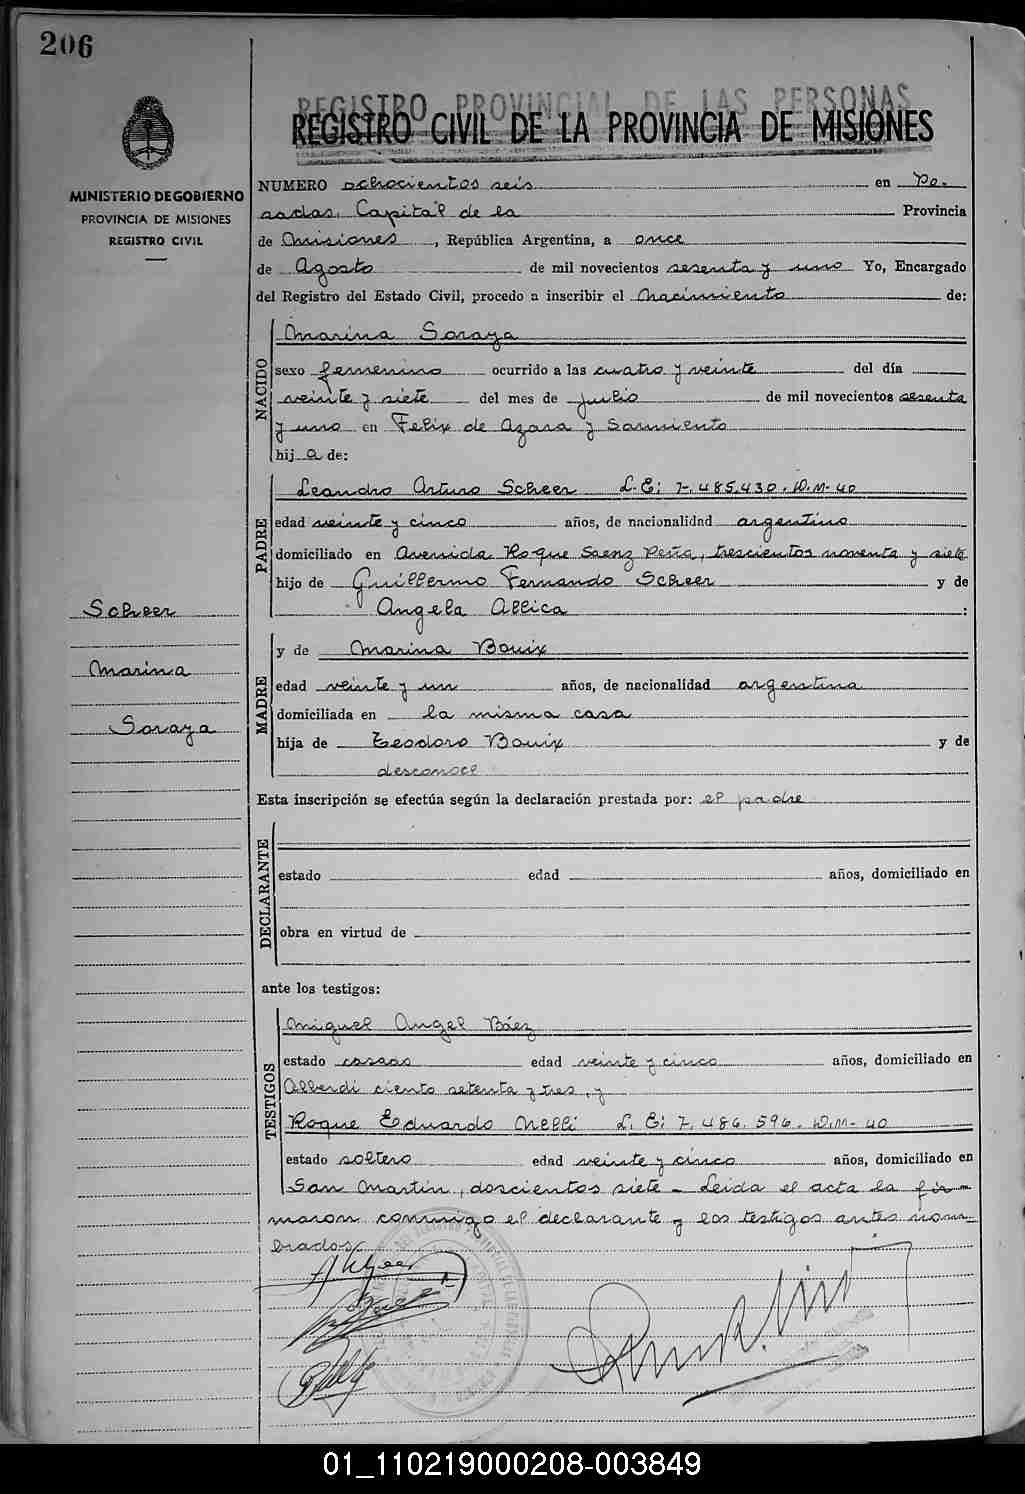 206
MINISTERIO DE GOBIERNO
PROVINCIA DE MISIONES
REGISTRO CIVIL
Scheer
Marina
Soraya
REGISTRO PROVINCIAL DE LAS PERSONAS
REGISTRO CIVIL DE LA PROVINCIA DE MISIONES
NUMERO ochocientos seis en Po-
sadas, Capital de la Provincia
de Misiones, República Argentina, a once
de Agosto de mil novecientos sesenta y uno Yo, Encargado
del Registro del Estado Civil, procedo a inscribir el nacimiento de:
NACIDO
Marina Soraya
sexo femenino ocurrido a las cuatro y veinte del día
veinte y siete del mes de julio de mil novecientos sesenta
y uno en Felix de Azara y Sarmiento
hij a de:
PADRE
Leandro Arturo Scheer L.E: 7.485.430. D.M. 40
edad veinte y cinco años, de nacionalidad argentino
domiciliado en Avenida Roque Saenz Peña, trescientos noventa y siete
hijo de Guillermo Fernando Scheer y de
Angela Allica :
MADRE
y de Marina Bouix
edad veinte y un años, de nacionalidad argentina
domiciliada en la misma casa
hija de Teodoro Bouix y de
desconoce
Esta inscripción se efectúa según la declaración prestada por: el padre
DECLARANTE
estado edad años, domiciliado en
obra en virtud de
ante los testigos:
TESTIGOS
Miguel Angel Báez
estado casado edad veinte y cinco años, domiciliado en
Alberdi ciento setenta y tres, y
Roque Eduardo Nelli L.E: 7.486.596. D.M- 40
estado soltero edad veinte y cinco años, domiciliado en
San Martin, doscientos siete - Leida el acta la fir-
maron conmigo el declarante y los testigos antes nom-
brados.
01_110219000208-003849